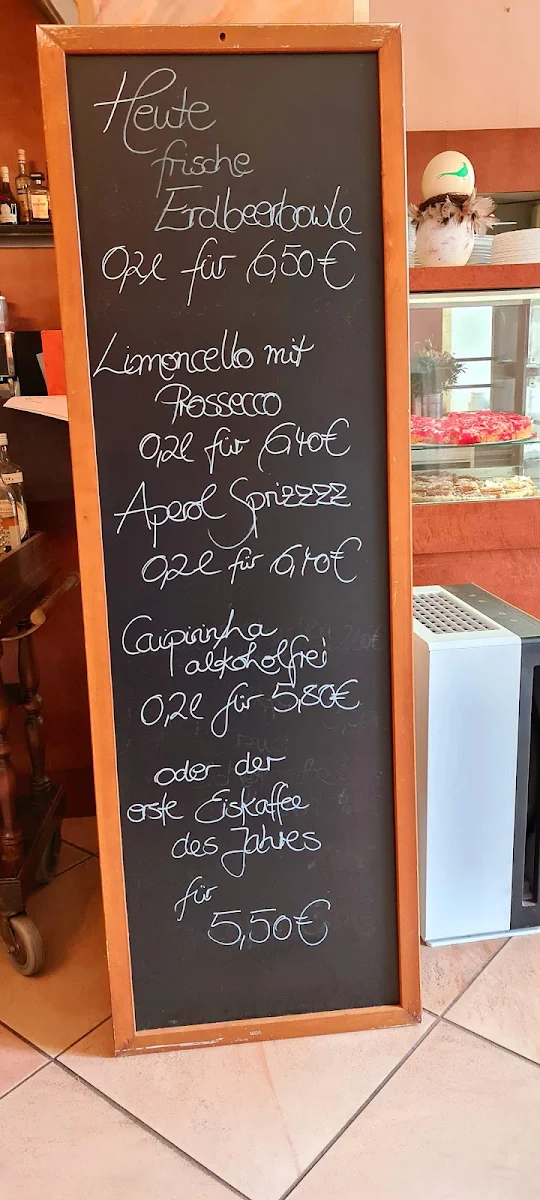 Heute
frische
Erdbeerbowle
0,2l für 6,50€
Limoncello mit
Prossecco
0,2l für 6,40€
Aperol Sprizzzz
0,2l für 6,40€
Caipirinha
alkoholfrei
0,2l für 5,80€
oder der
erste Eiskaffee
des Jahres
für
5,50€